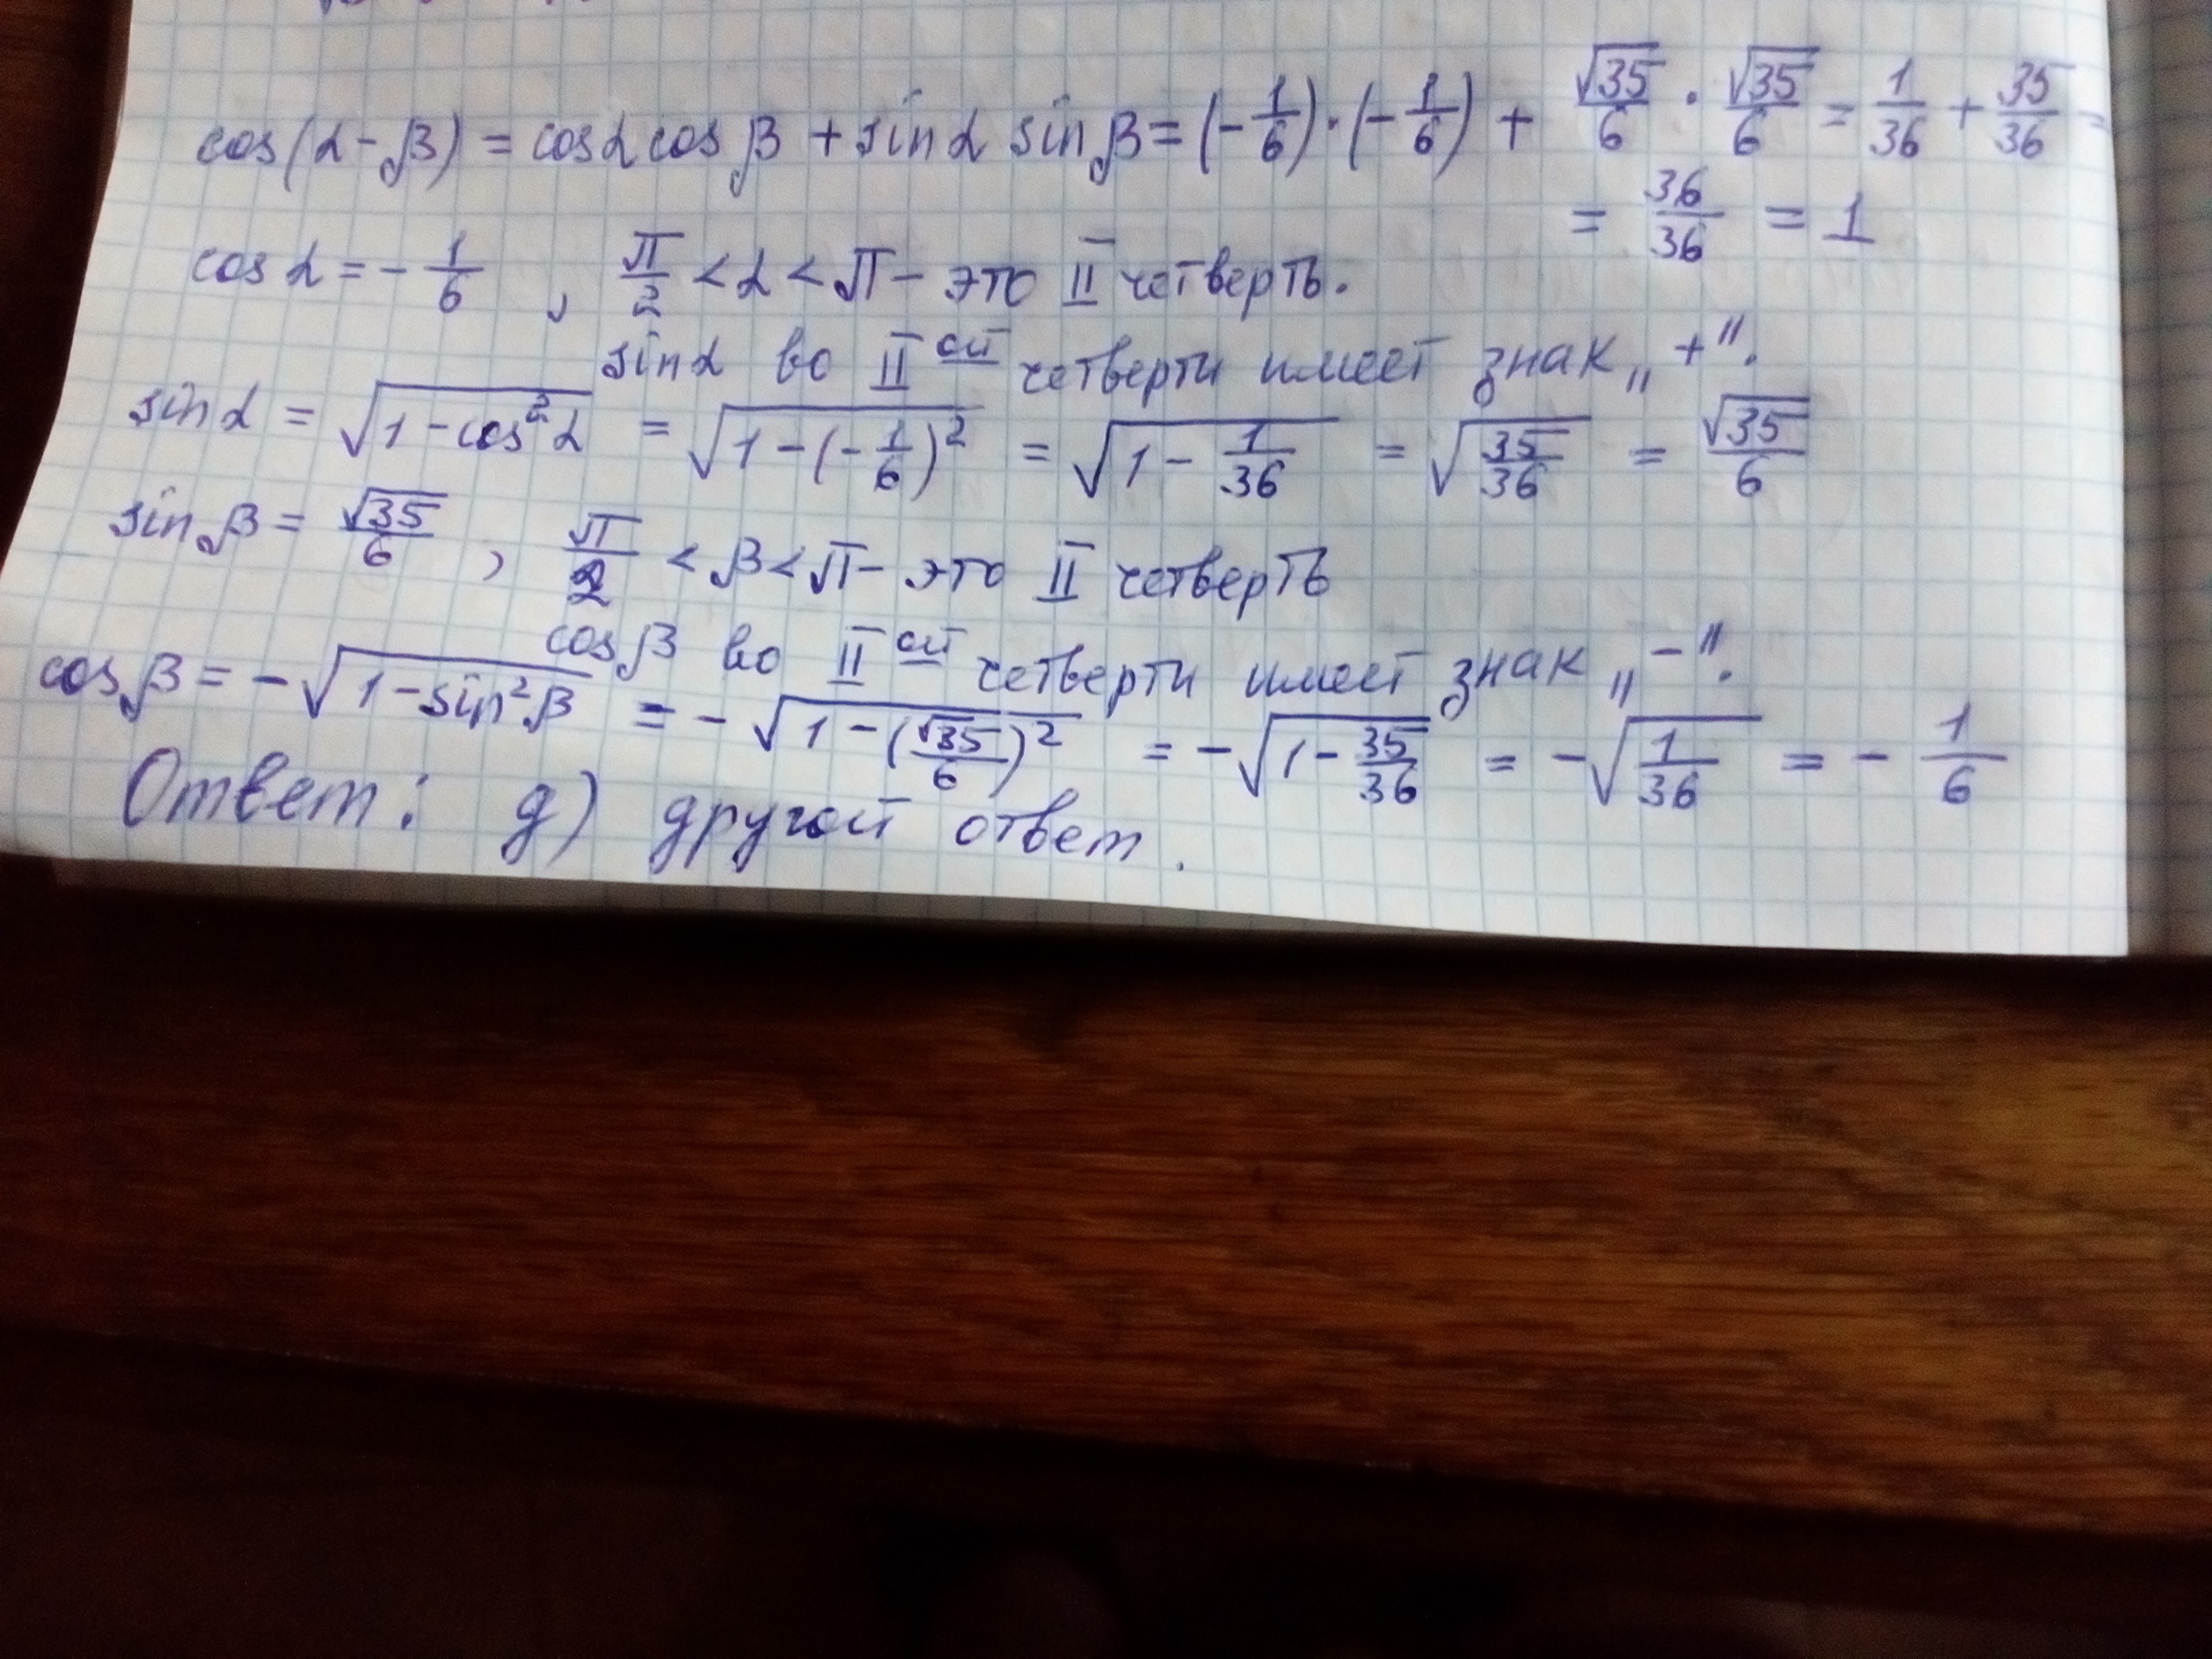 cos(α-β) = cosα cosβ + sinα sinβ = (-1/6)·(-1/6) + √35/6 · √35/6 = 1/36 + 35/36 =
= 36/36 = 1
cosα = -1/6 , π/2 < α < π - это II четверть.
sinα во II ой четверти имеет знак „+".
sinα = √(1-cos²α) = √(1-(-1/6)²) = √(1-1/36) = √(35/36) = √35/6
sinβ = √35/6 , π/2 < β < π - это II четверть
cosβ во II ой четверти имеет знак „-".
cosβ = -√(1-sin²β) = -√(1-(√35/6)²) = -√(1-35/36) = -√(1/36) = -1/6
Ответ: д) другой ответ.